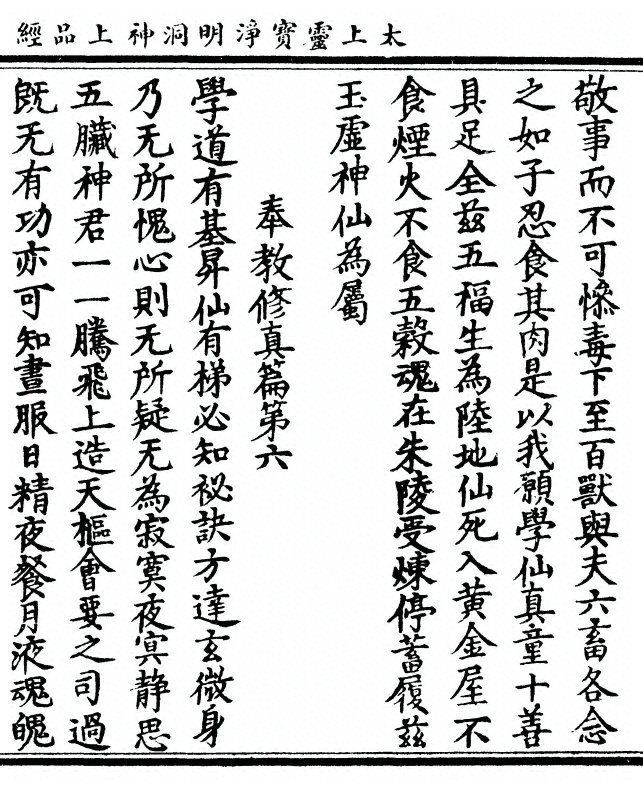 太上靈寶淨明洞神上品經
敬事而不可慘毒下至百獸與夫六畜各念
之如子忍食其肉是以我願學仙真童十善
具足全茲五福生為陸地仙死入黃金屋不
食煙火不食五穀魂在朱陵受煉停蓄履茲
玉虛神仙為屬
奉教修真篇第六
學道有基昇仙有梯必知祕訣方達玄微身
乃无所愧心則无所疑无為寂寞夜寞静思
五臟神君一一騰飛上造天樞會要之司過
既无有功亦可知晝服日精夜餐月液魂魄